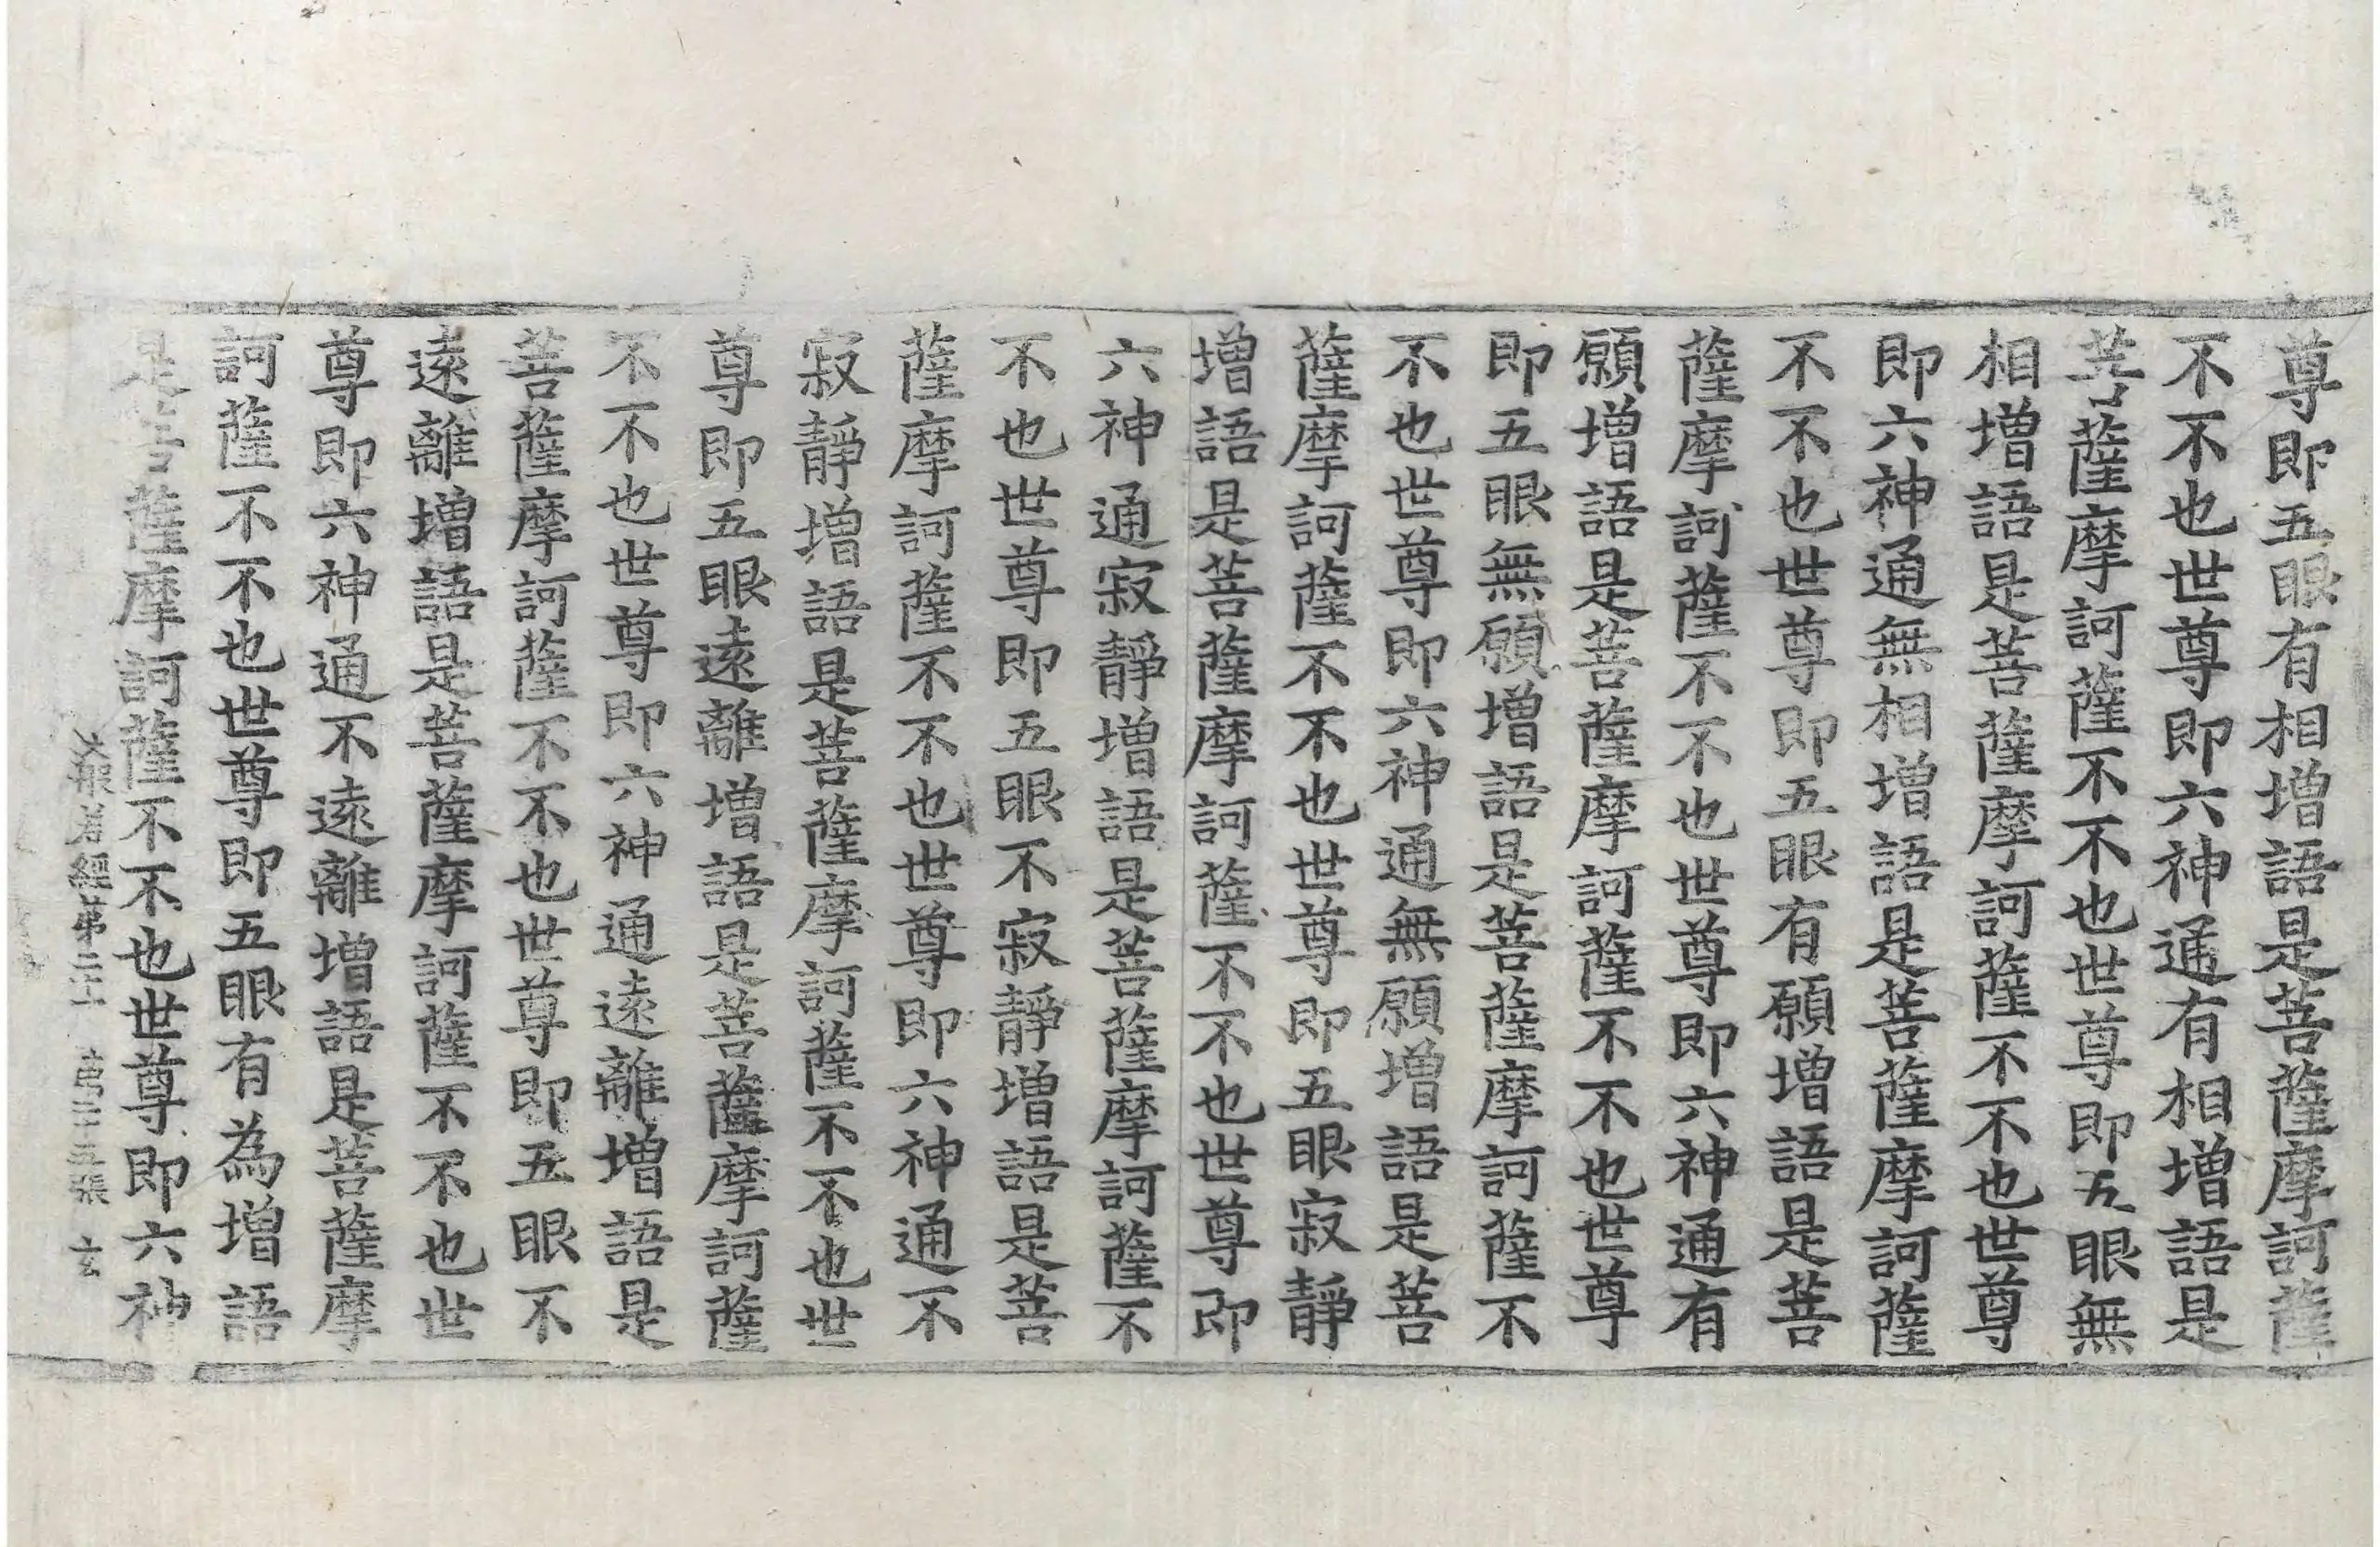 尊即五眼有相增語是菩薩摩訶薩
不不也世尊即六神通有相增語是
菩薩摩訶薩不不也世尊即五眼無
相增語是菩薩摩訶薩不不也世尊
即六神通無相增語是菩薩摩訶薩
不不也世尊即五眼有願增語是菩
薩摩訶薩不不也世尊即六神通有
願增語是菩薩摩訶薩不不也世尊
即五眼無願增語是菩薩摩訶薩不
不也世尊即六神通無願增語是菩
薩摩訶薩不不也世尊即五眼寂靜
增語是菩薩摩訶薩不不也世尊即
六神通寂靜增語是菩薩摩訶薩不
不也世尊即五眼不寂靜增語是菩
薩摩訶薩不不也世尊即六神通不
寂靜增語是菩薩摩訶薩不不也世
尊即五眼遠離增語是菩薩摩訶薩
不不也世尊即六神通遠離增語是
菩薩摩訶薩不不也世尊即五眼不
遠離增語是菩薩摩訶薩不不也世
尊即六神通不遠離增語是菩薩摩
訶薩不不也世尊即五眼有為增語
是菩薩摩訶薩不不也世尊即六神
大般若經第二十 第二十五張 玄